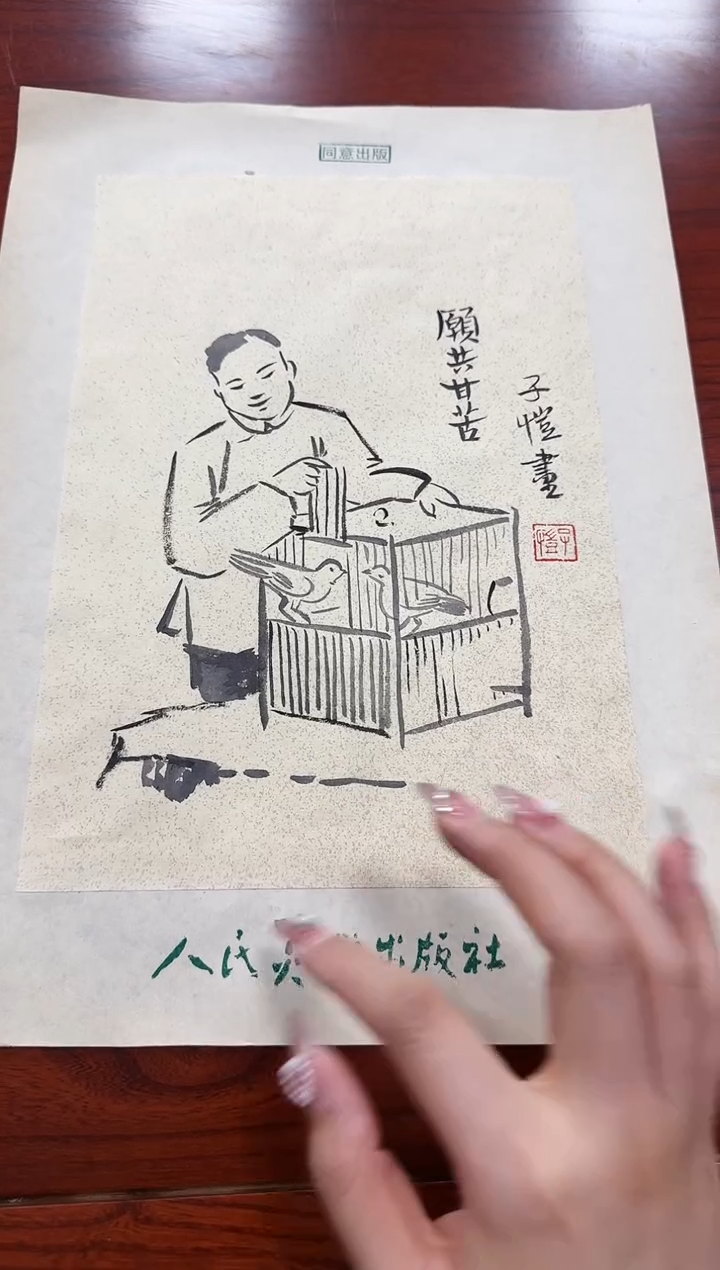 同意出版
願共甘苦
子愷畫
子愷
人民美 出版社